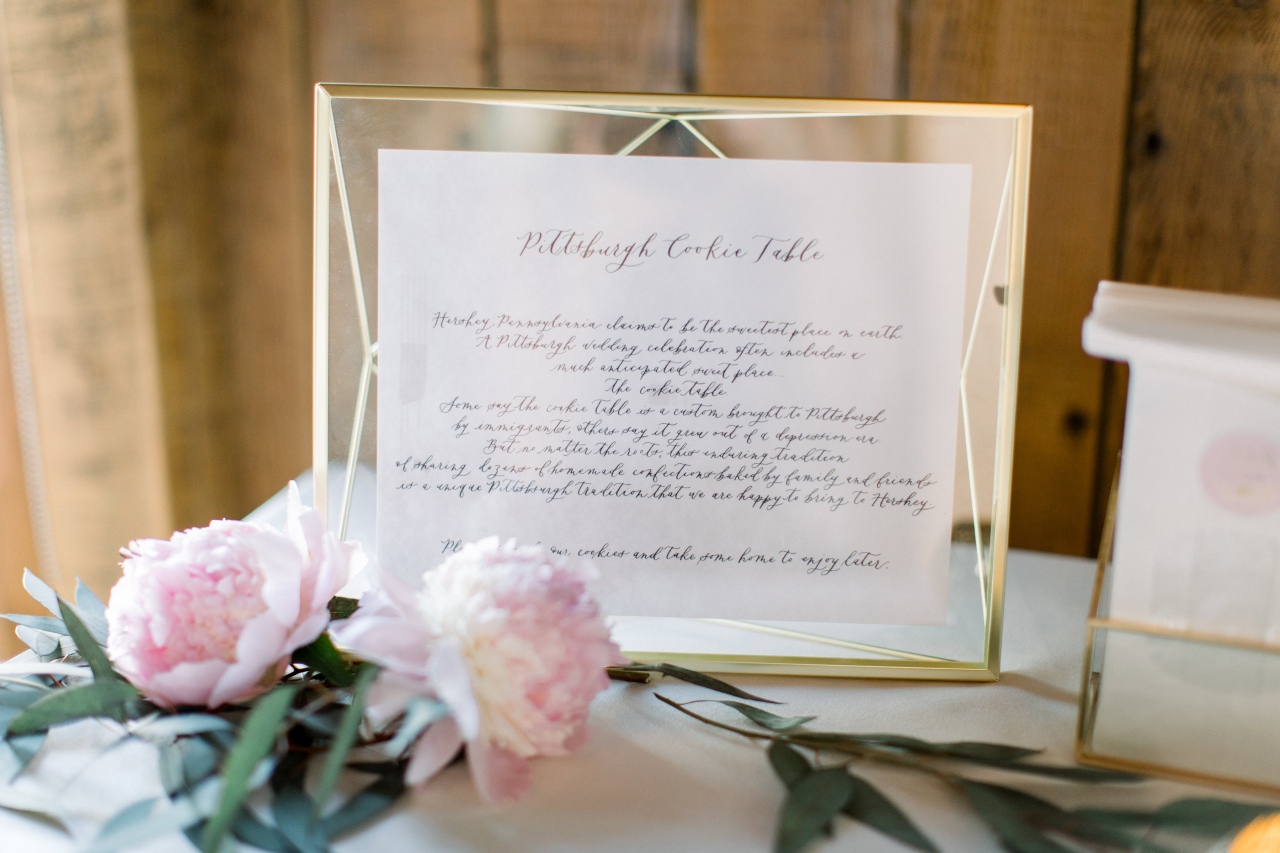 Pittsburgh Cookie Table
Hershey Pennsylvania claims to be the sweetest place on earth
A Pittsburgh wedding celebration often includes a
much anticipated sweet place...
the cookie table
Some say the cookie table is a custom brought to Pittsburgh
by immigrants, others say it grew out of a depression era.
But no matter the roots, this enduring tradition
of sharing dozens of homemade confections baked by family and friends
is a unique Pittsburgh tradition that we are happy to bring to Hershey
our cookies and take some home to enjoy later.